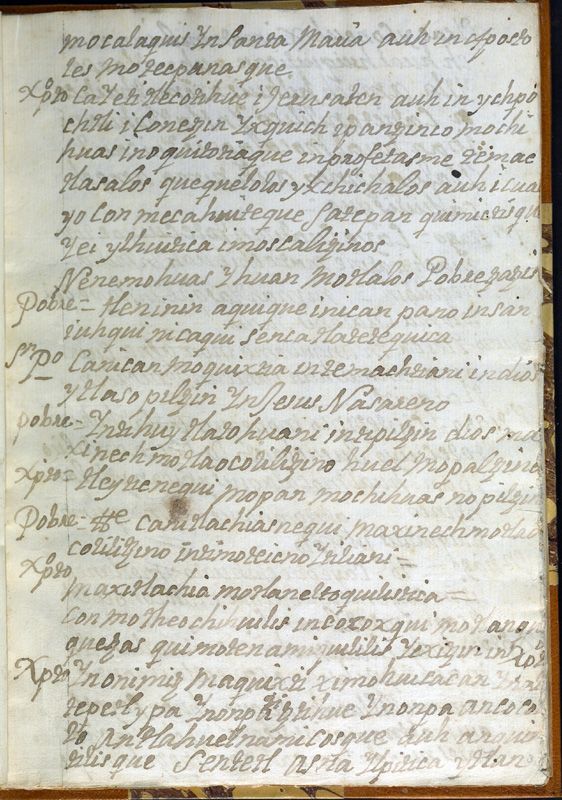 mocalaquis Yn Santa Maria auh in aposto
les motecpanasque
Xpto Ca Yeti tecotihue i Jerusalen auh in ychpo
chtli i Conetzin Yxquich ipantzinco mochi
huas in oquitotiaque in profetasme temac
tlasalos quequelolos yxchichalos auh i cua
yo Con mecahuiteque Satepan quimictisque
Yei ylhuitica imoscalitzinos
Nenemohuas Yhuan motlalos Pobretzitzi
Pobre = tlen inin aquique inican pano in san
iuhqui nicaqui senca tlatetequica
Sn Po Canican moquixtia in temachtiani in dios
ytlaso piltzin Yn Jesus Nasareno
pobre = Yntihuey tlatohuani intipiltzin dios ma
xinechmotlaocoliltzino huel mopaltzinco
Xpto = tleytenequi mopan mochihuas nopiltzin
Pobre = Ca nitlachiasnequi maxinechmotlao
coliltzino intimoteicnoYtiliani =
Xpto
maxitlachia motlaneltoquilistica =
Con motheochihuilis in coxoxqui motlanqua
quetzas quimotenamiquililis Yexiquin in Xpto
Xpto Ynonimitzmaquixti ximohuicacan Yn al
tepetl ypa Ynonpa Ytztihue Ynonpa ancoca
to antlahuelnamicosque auh anqui
tilisque Sentetl asna Ylpitica ytlan